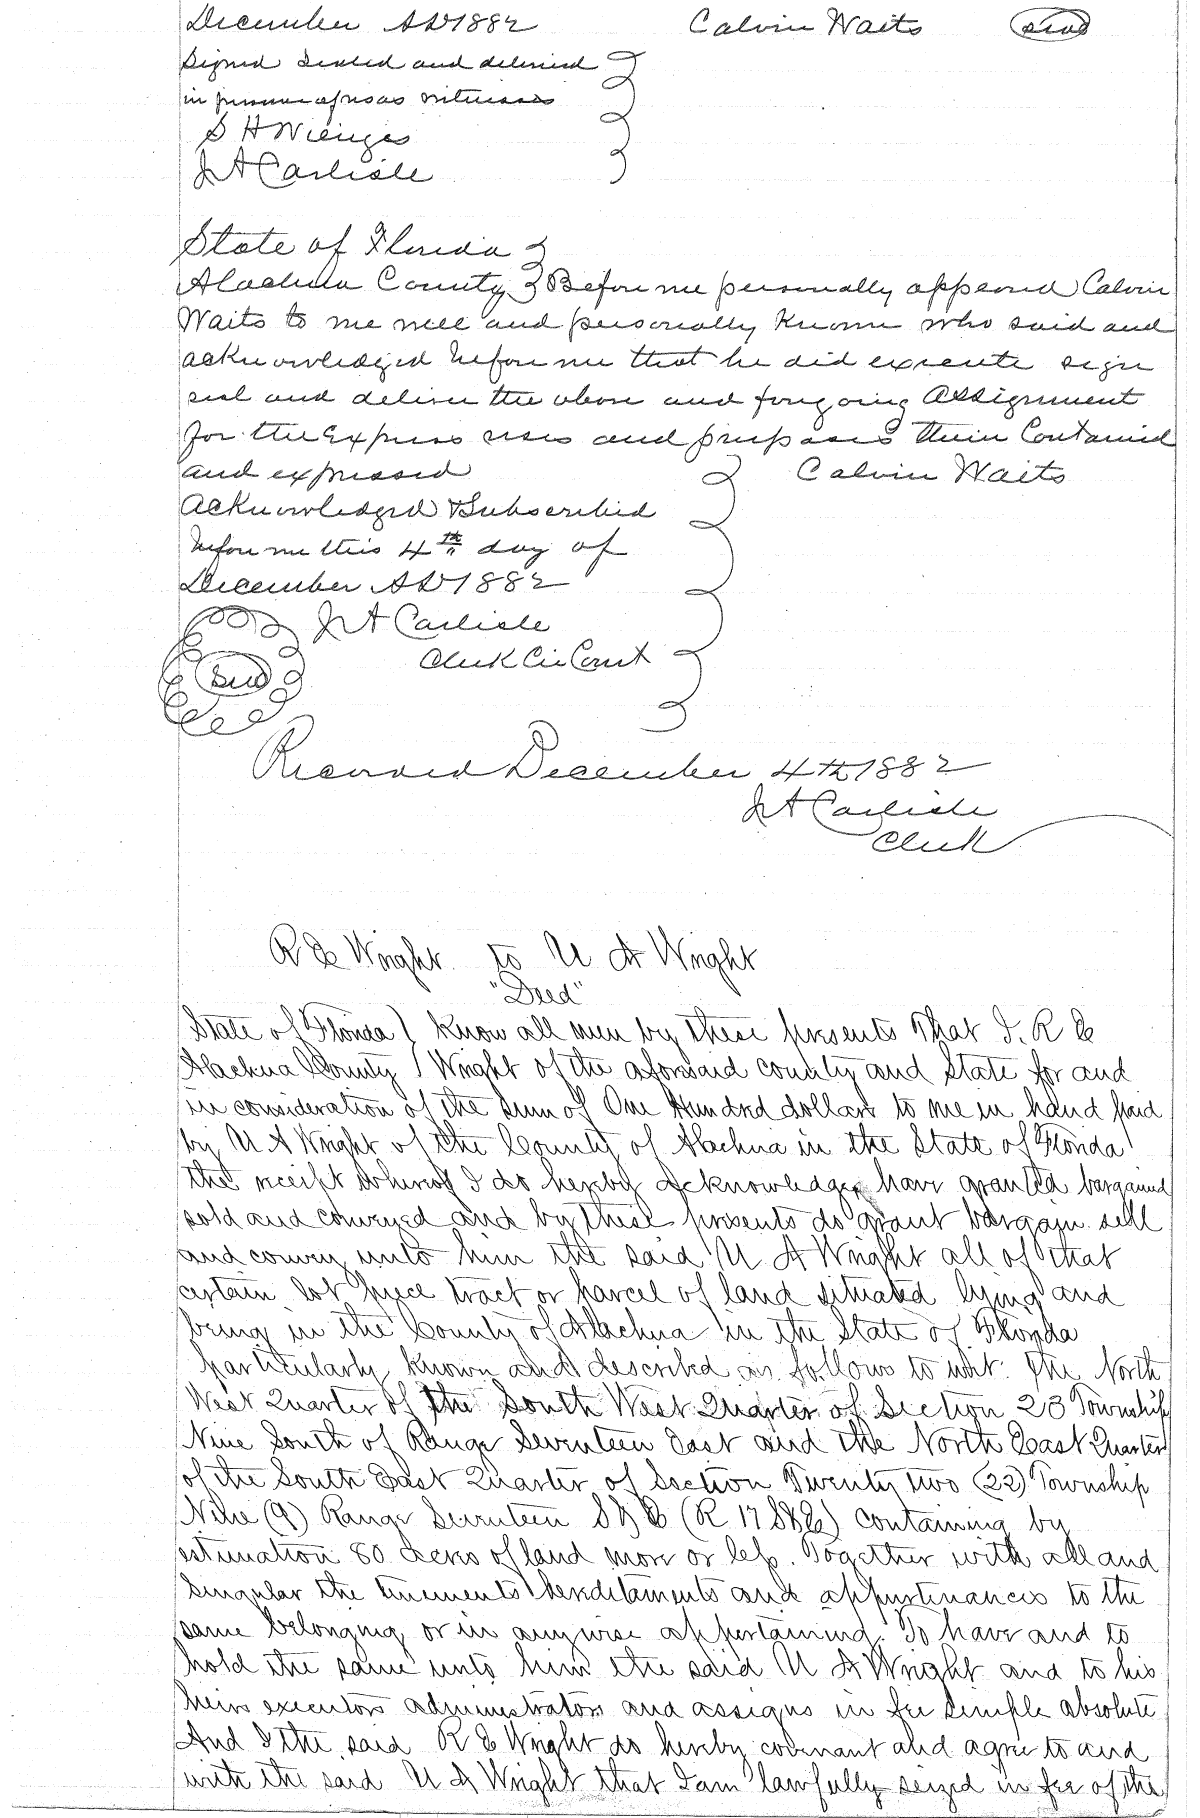 December AD 1882 Calvin Waits Seal
Signed Sealed and delivered
in presence of us as witnesses
S H Wienges
J A Carlisle
State of Florida
Alachua County Before me personally appeared Calvin
Waits to me well and personally Known who said and
acknowledged before me that he did execute sign
seal and deliver the above and foregoing Assignment
for the Express uses and purposes therein Contained
and expressed Calvin Waits
Acknowledged & Subscribed
before me this 4th day of
December AD 1882
J A Carlisle
Seal Clerk Cir Court
Recorded December 4th 1882
J A Carlisle
Clerk
R E Wright to U A Wright
"Deed"
State of Florida ) Know all men by these presents That I. R E
Alachua County ) Wright of the aforesaid county and State for and
in consideration of the sum of One Hundred dollars to me in hand paid
by U A Wright of the County of Alachua in the State of Florida
the receipt whereof I do hereby acknowledge, have granted bargained
sold and conveyed and by these presents do grant bargain sell
and convey unto him the said U A Wright all of that
certain lot piece tract or parcel of land situated lying and
being in the County of Alachua in the State of Florida
particularly known and described as follows to wit. The North
West Quarter of the South West Quarter of Section 23 Township
Nine South of Range Seventeen East and the North East Quarter
of the South East Quarter of Section Twenty two (22) Township
Nine (9) Range Seventeen S & E (R 17 S & E) containing by
estimation 80 acres of land more or less. Together with all and
singular the tenements hereditaments and appurtenances to the
same belonging or in anywise appertaining. To have and to
hold the same unto him the said U A Wright and to his
heirs executors administrators and assigns in fee simple absolute
And I the said R E Wright do hereby covenant and agree to and
with the said U A Wright that I am lawfully seized in fee of the